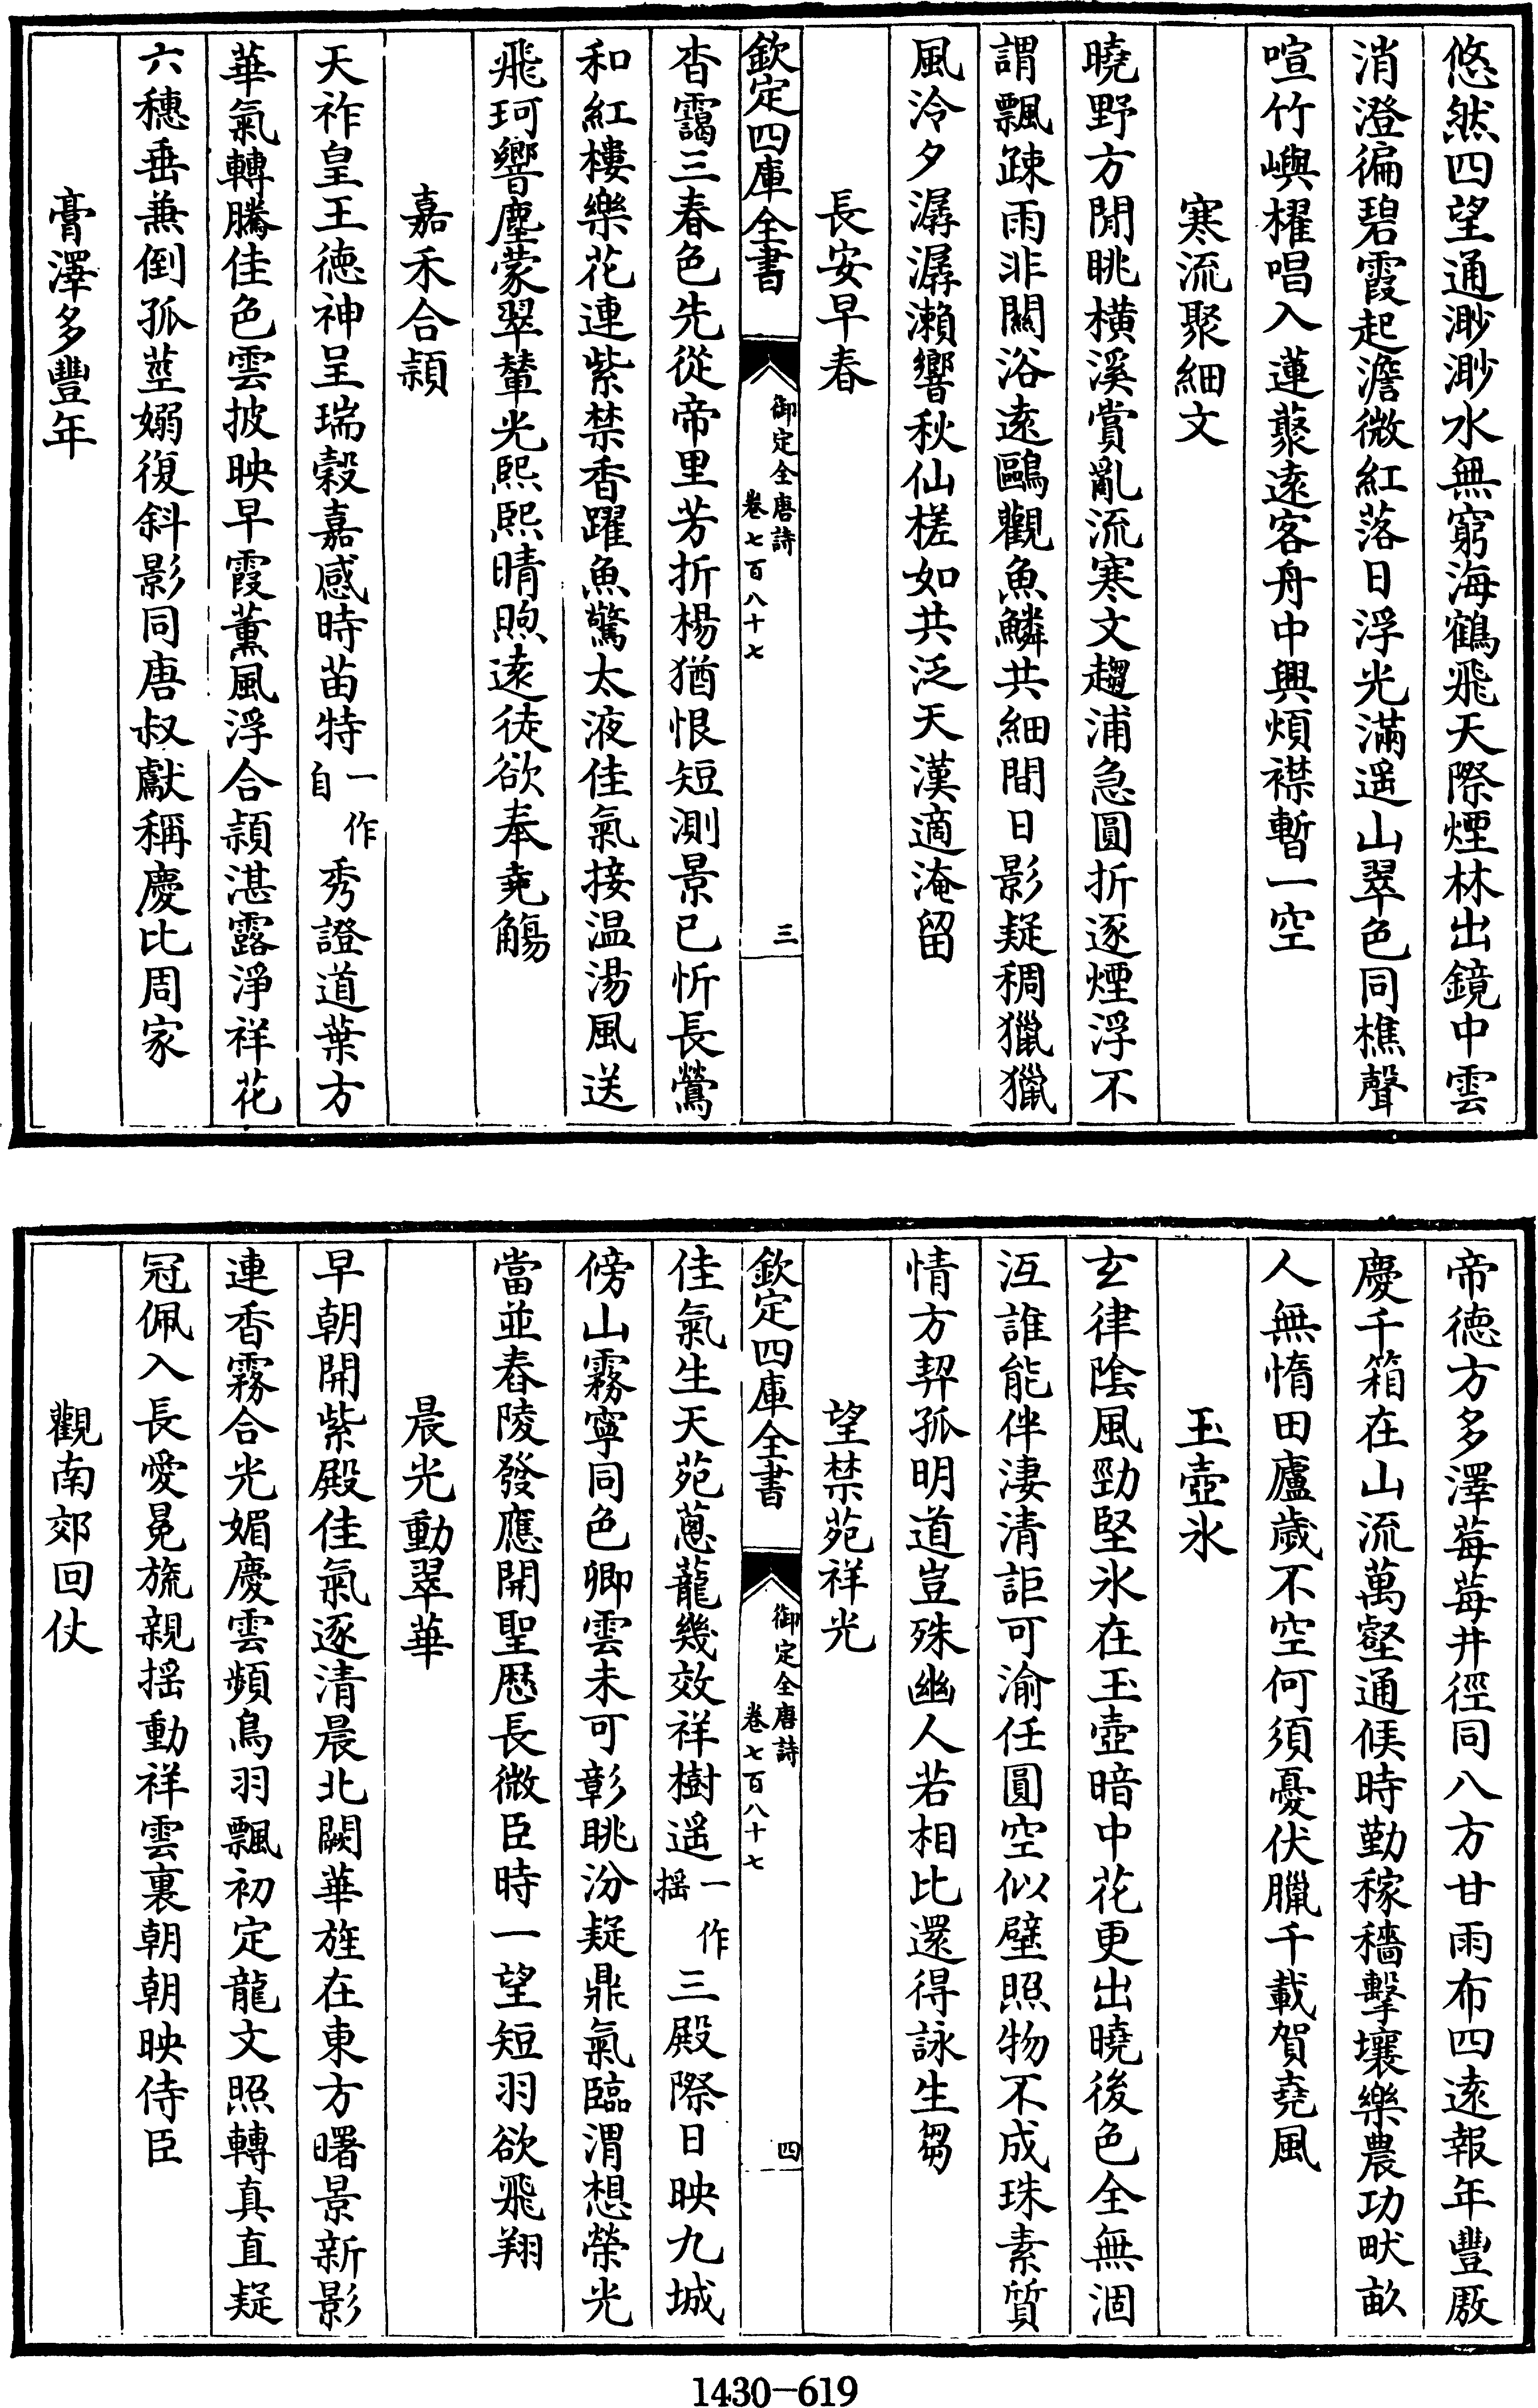 悠然四望通渺渺水無窮海鶴飛天際煙林出鏡中雲
消澄徧碧霞起澹微紅落日浮光滿遥山翠色同樵聲
喧竹嶼櫂唱入蓮藂遠客舟中興煩襟暫一空
寒流聚細文
曉野方閒眺横溪賞亂流寒文趨浦急圓折逐煙浮不
謂飄疎雨非關浴遠鷗觀魚鱗共細間日影疑稠獵獵
風泠夕潺潺瀨響秋仙槎如共泛天漢適淹留
長安早春
欽定四庫全書
御定全唐詩
卷七百八十七
三
杳靄三春色先從帝里芳折楊猶恨短測景已忻長鶯
和紅樓樂花連紫禁香躍魚驚太液佳氣接温湯風送
飛珂響塵蒙翠輦光熙熙晴煦遠徒欲奉堯觴
嘉禾合頴
天祚皇王徳神呈瑞穀嘉感時苗特一作自秀證道葉方
華氣轉騰佳色雲披映早霞薰風浮合頴湛露淨祥花
六穗垂兼倒孤莖嫋復斜影同唐叔獻稱慶比周家
膏澤多豐年
帝徳方多澤莓莓井徑同八方甘雨布四遠報年豐廒
慶千箱在山流萬壑通候時勤稼穡擊壤樂農功畎畝
人無惰田廬歳不空何須憂伏臘千載賀堯風
玉壺氷
玄律陰風勁堅氷在玉壺暗中花更出曉後色全無涸
沍誰能伴淒清詎可渝任圓空似璧照物不成珠素質
情方契孤明道豈殊幽人若相比還得詠生芻
望禁苑祥光
欽定四庫全書
御定全唐詩
卷七百八十七
四
佳氣生天苑蔥蘢幾效祥樹遥一作揺三殿際日映九城
傍山霧寜同色卿雲未可彰眺汾疑鼎氣臨渭想榮光
當並舂陵發應開聖厯長微臣時一望短羽欲飛翔
晨光動翠華
早朝開紫殿佳氣逐清晨北闕華旌在東方曙景新影
連香霧合光媚慶雲頻鳥羽飄初定龍文照轉真直疑
冠佩入長愛冕旒親揺動祥雲裏朝朝映侍臣
觀南郊回仗
1430-619